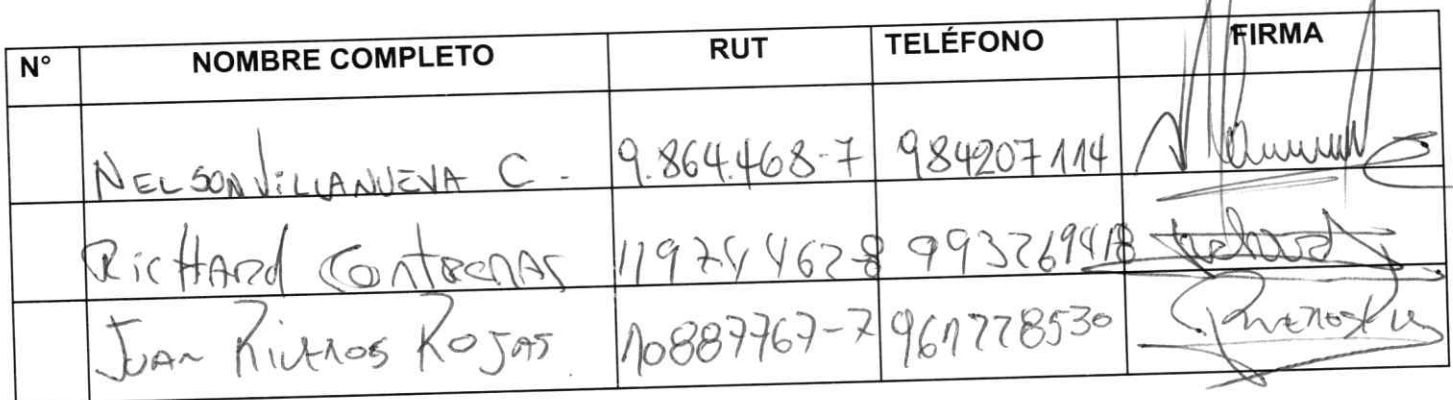 N° NOMBRE COMPLETO RUT TELÉFONO FIRMA
NELSON VILLANUEVA C. 9.864.468-7 984207114
RicHARd Contreras 993269418
JUAN RIVEROS ROJAS 10887767-7 961778530